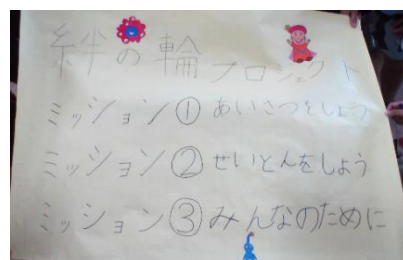 絆の輪プロジェクト
ミッション①あいさつをしよう
ミッション②せいとんをしよう
ミッション③みんなのために